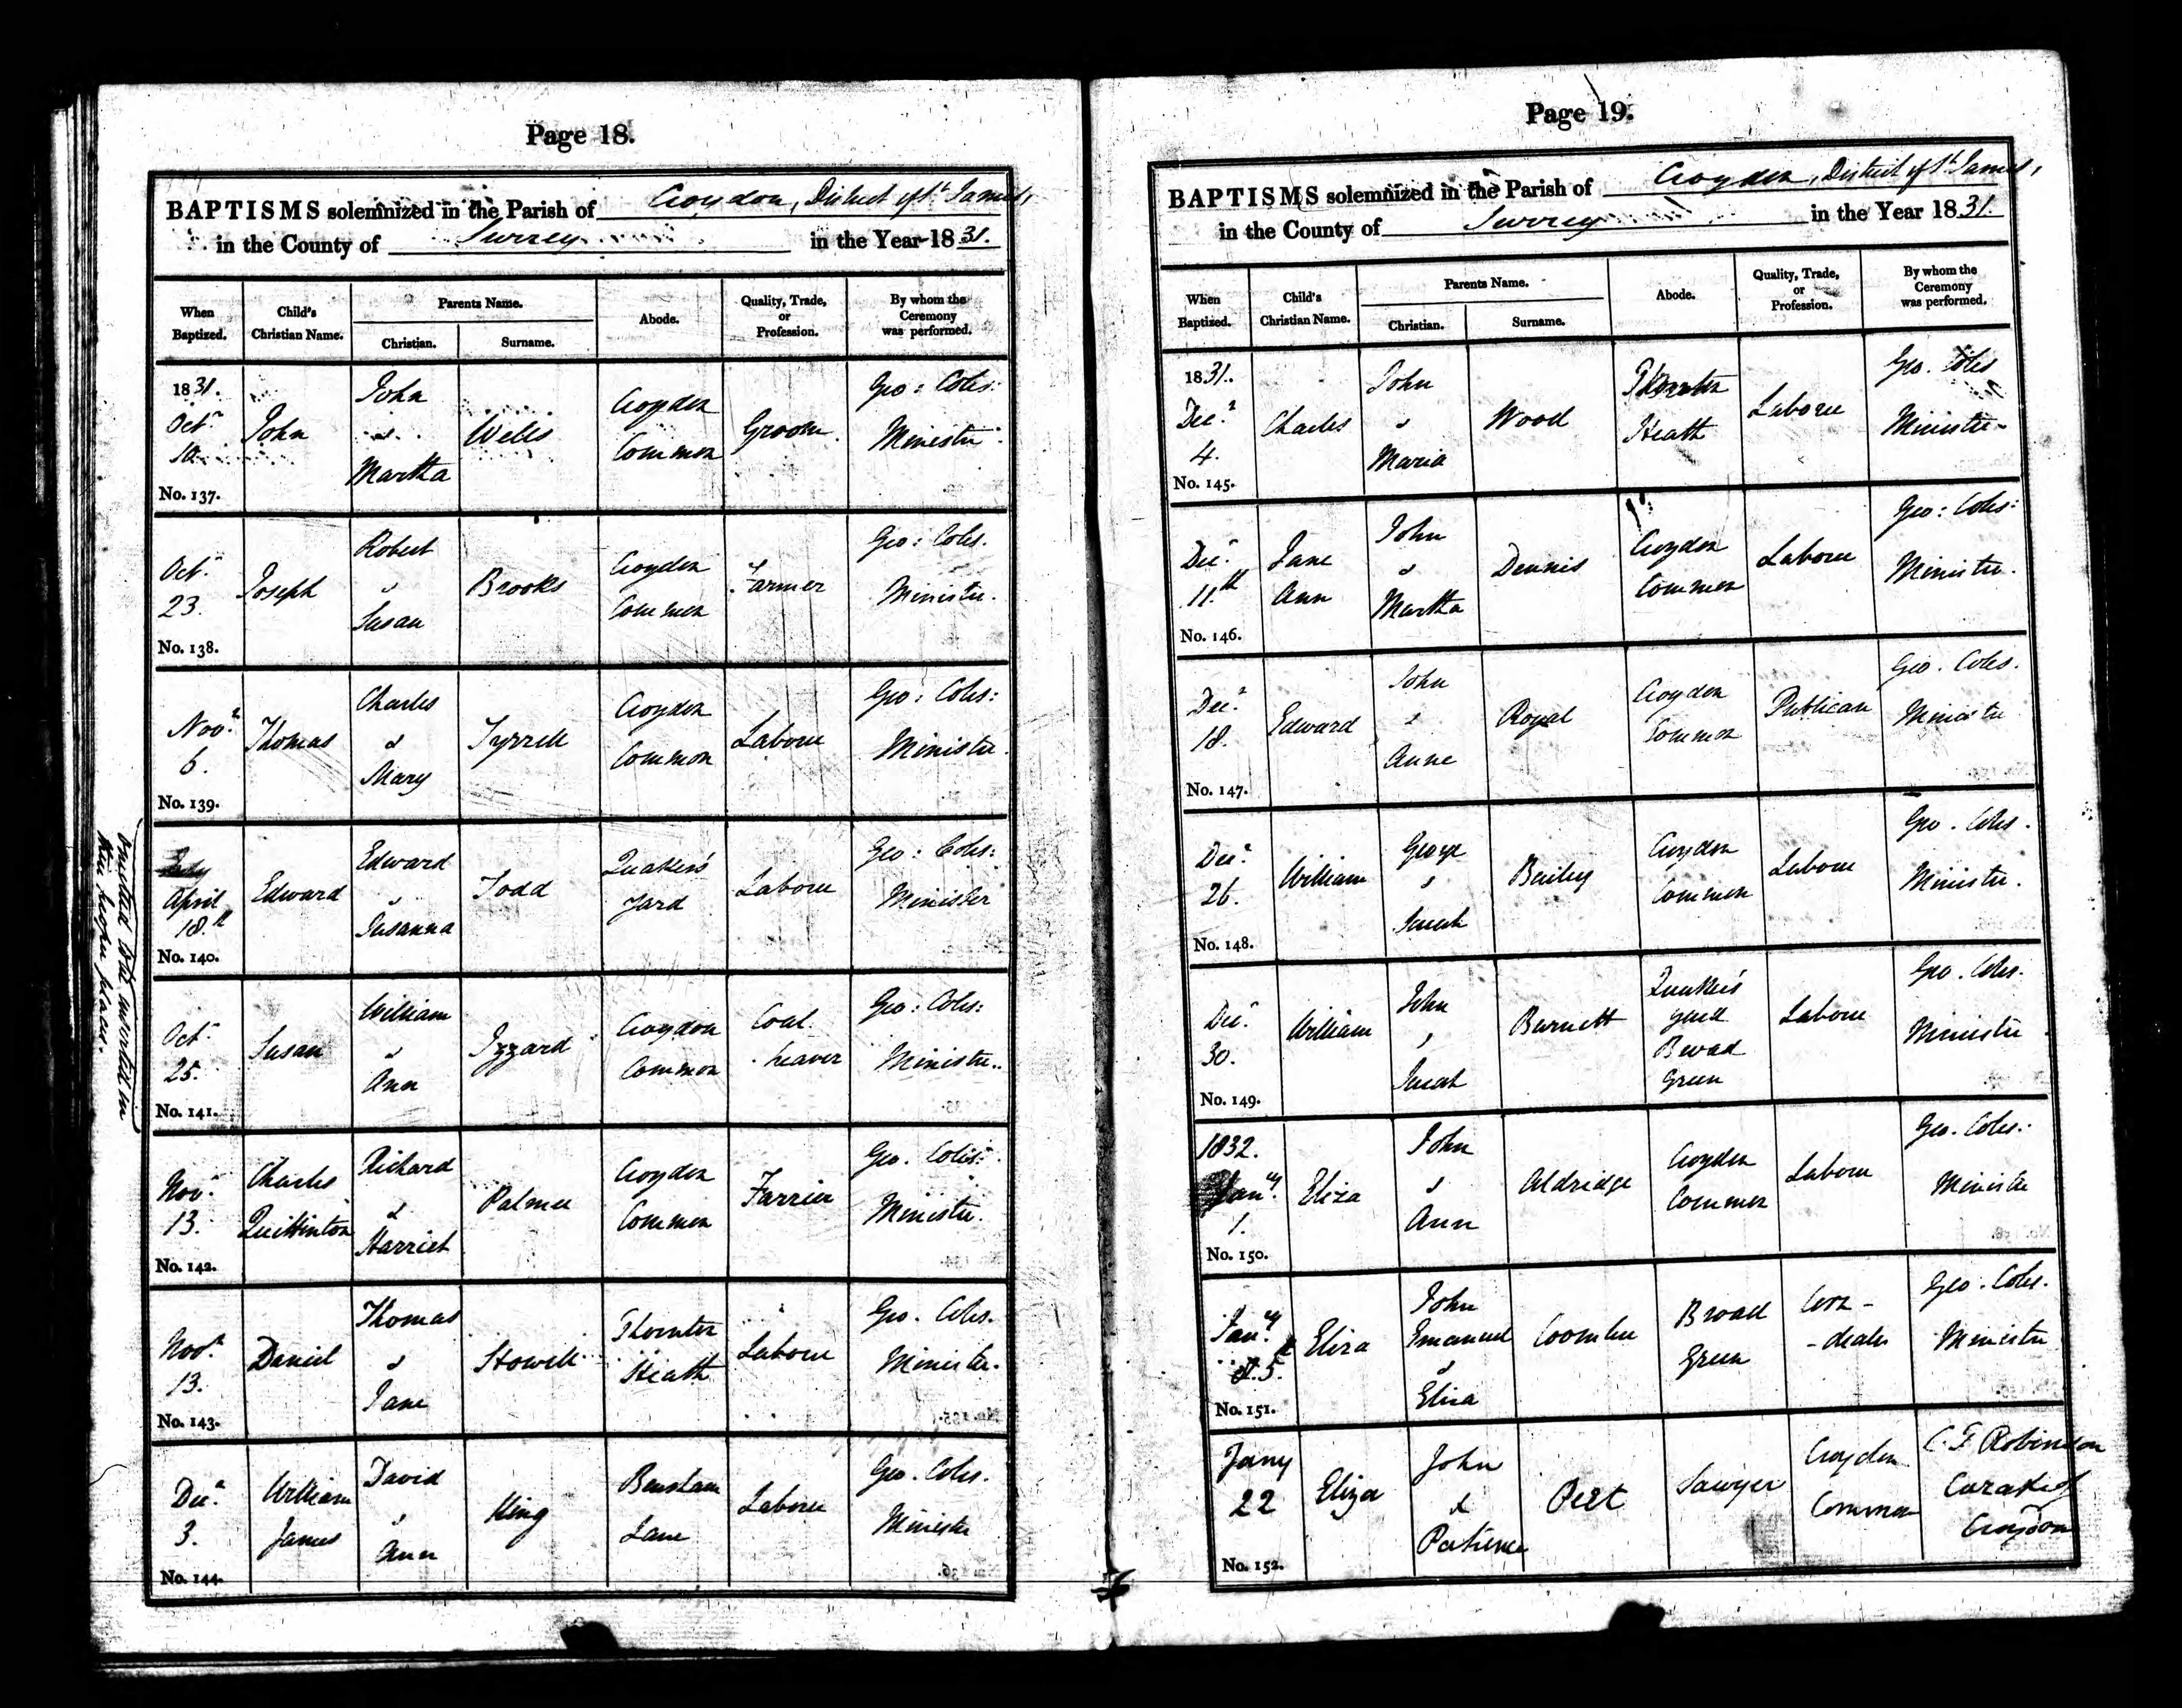 Page 18.
BAPTISMS solemnized in the Parish of Croydon, District of St. James,
in the County of Surrey in the Year 1831.
When Baptized.
Child's Christian Name.
Parents Name.
Christian.
Surname.
Abode.
Quality, Trade, or Profession.
By whom the Ceremony was performed.
1831. Octr. 10. John John & Martha Wells Croydon Common Groom Geo: Coles: Minister
No. 137.
Octr. 23. Joseph Robert & Susan Brooks Croydon Common Farmer Geo: Coles. Minister.
No. 138.
Novr. 6. Thomas Charles & Mary Tyrrell Croydon Common Laborer Geo: Coles: Minister.
No. 139.
July April 18th Edward Edward & Susanna Todd Quaker's Yard Laborer Geo: Coles: Minister
No. 140.
omitted to be inserted in
the proper place.
Octr. 25. Susan William & Ann Izzard Croydon Common Coal heaver Geo: Coles: Minister.
No. 141.
Novr. 13. Charles Quittinton Richard & Harriet Palmer Croydon Common Farrier Geo. Coles. Minister.
No. 142.
Novr. 13. Daniel Thomas & Jane Stowell Thornton Heath Laborer Geo. Coles. Minister.
No. 143.
Decr. 3. William James David & Ann King Lane Laborer Geo. Coles. Minister
No. 144.
Page 19.
BAPTISMS solemnized in the Parish of Croydon, District of St. James,
in the County of Surrey in the Year 1831.
When Baptized.
Child's Christian Name.
Parents Name.
Christian.
Surname.
Abode.
Quality, Trade, or Profession.
By whom the Ceremony was performed.
1831. Decr. 4. Charles John & Maria Wood Thornton Heath Laborer Geo. Coles Minister
No. 145.
Decr. 11th Jane Ann John & Martha Dennis Croydon Common Laborer Geo: Coles: Minister.
No. 146.
Decr. 18. Edward John & Anne Royal Croydon Common Publican Geo. Coles. Minister
No. 147.
Decr. 26. William George & Sarah Bailey Croydon Common Laborer Geo. Coles. Minister.
No. 148.
Decr. 30. William John & Sarah Burnett Quaker's yard Broad Green Laborer Geo. Coles. Minister
No. 149.
1832. Jany. 1. Eliza John & Ann Aldridge Croydon Common Laborer Geo. Coles. Minister
No. 150.
Jany. 5. Eliza John Emanuel & Eliza Coomber Broad Green Corn-dealer Geo. Coles. Minister
No. 151.
Jany 22 Eliza John & Patience Peet Sawyer Croydon Common C. F. Robinson Curate of Croydon
No. 152.